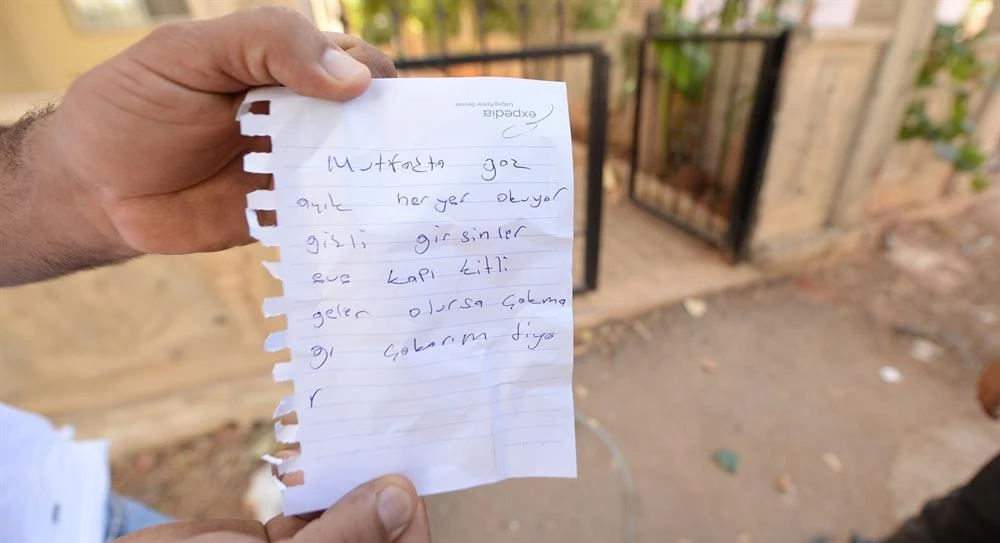 expedia
Lodging Partner Services
Mutfakta gaz
açık heryer okuyor
gizli girsinler
eve kapı kitli
gelen olursa çakma
ğı çakarım diyo
r